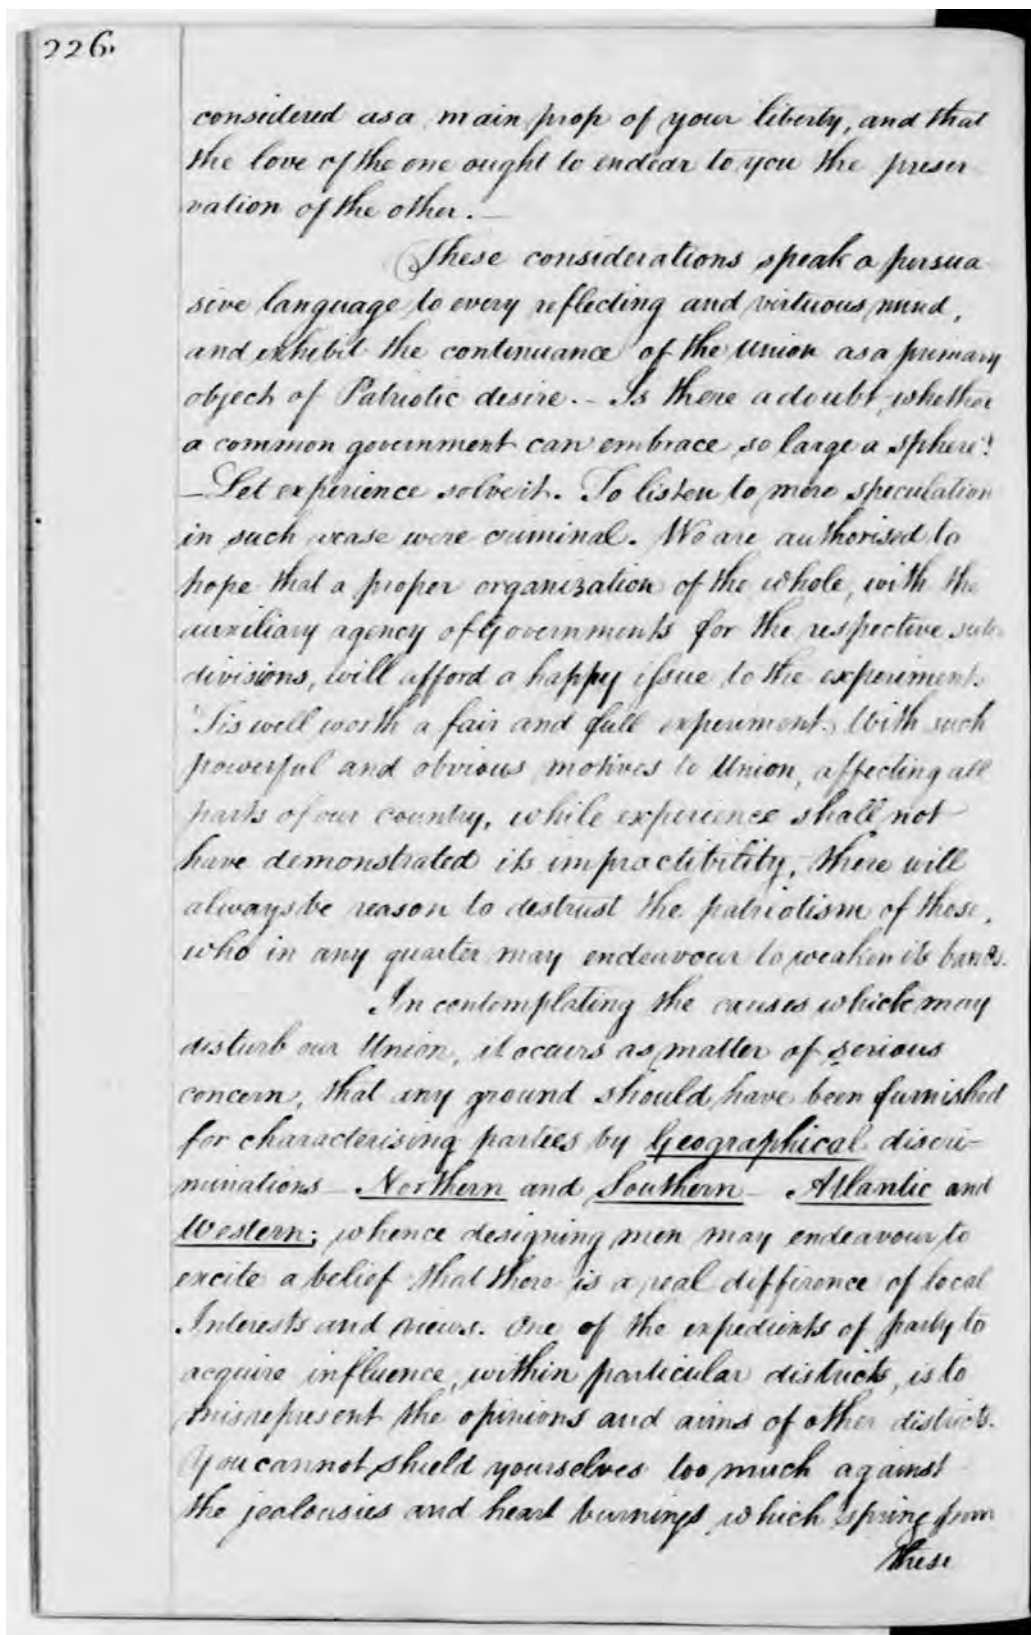 226.
considered as a main prop of your liberty, and that
the love of the one ought to endear to you the preser-
vation of the other. —
These considerations speak a persua-
sive language to every reflecting and virtuous mind,
and exhibit the continuance of the Union as a primary
object of Patriotic desire. — Is there a doubt, whether
a common government can embrace so large a sphere?
— Let experience solve it. To listen to mere speculation
in such a case were criminal. We are authorised to
hope that a proper organization of the whole, with the
auxiliary agency of Governments for the respective sub-
divisions, will afford a happy issue to the experiment.
'Tis well worth a fair and full experiment. With such
powerful and obvious motives to Union, affecting all
parts of our country, while experience shall not
have demonstrated its impractibility, there will
always be reason to distrust the patriotism of those,
who in any quarter may endeavour to weaken its bands.
In contemplating the causes which may
disturb our Union, it occurs as matter of serious
concern, that any ground should have been furnished
for characterising parties by Geographical discri-
minations — Northern and Southern — Atlantic and
Western; whence designing men may endeavour to
excite a belief that there is a real difference of local
Interests and views. One of the expedients of party to
acquire influence, within particular districts, is to
misrepresent the opinions and aims of other districts.
You cannot shield yourselves too much against
the jealousies and heart burnings which spring from
these